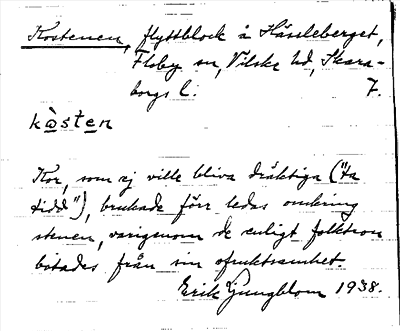 Kostenen, flyttblock å Hässleberget,
Floby sn, Vilske hd, Skara-
borgs l. 7.
kɑ̀sten
Kor, som ej ville bliva dräktiga ("ta
tidd"), brukade förr ledas omkring
stenen, varigenom de enligt folktron
botades från sin ofruktsamhet.
Erik Ljungblom 1938.